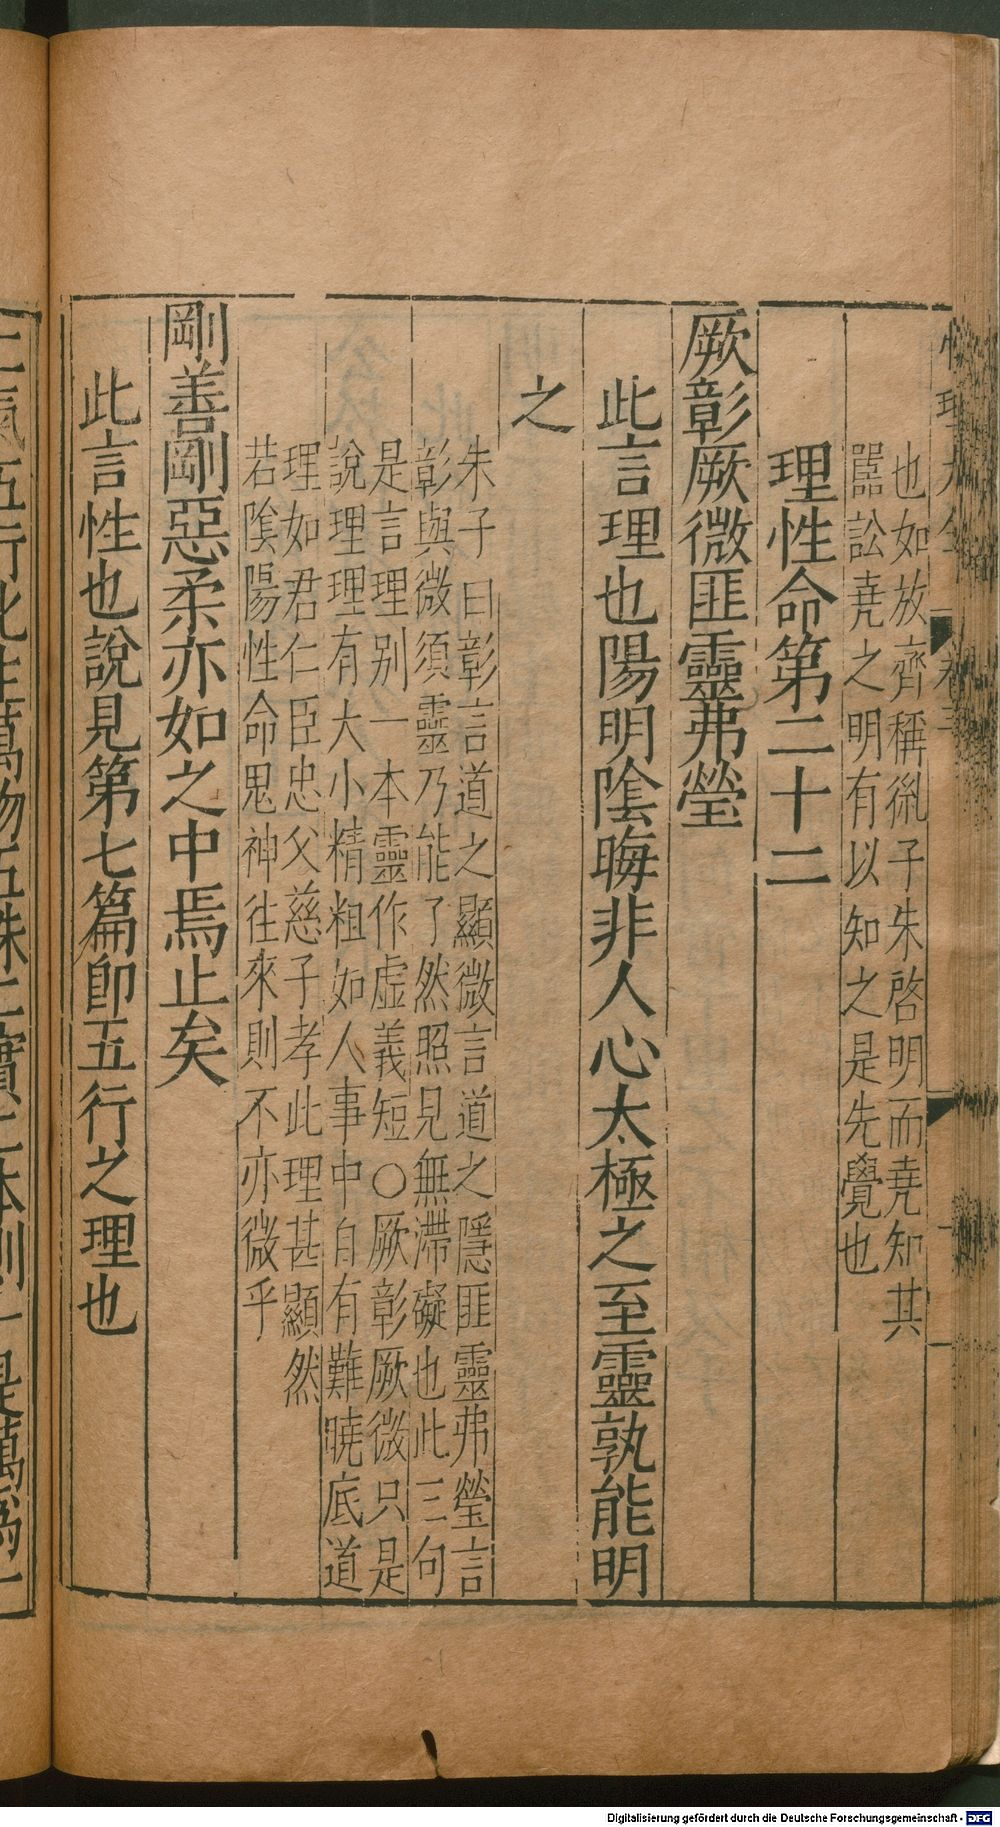 也如放齊稱胤子朱啓明而堯知其
嚚訟堯之明有以知之是先覺也
理性命第二十二
厥彰厥微匪靈弗瑩
此言理也陽明陰晦非人心太極之至靈孰能明
之
朱子曰彰言道之顯微言道之隱匪靈弗瑩言
彰與微須靈乃能了然照見無滯礙也此三句
是言理别一本靈作虚義短○厥彰厥微只是
說理理有大小精粗如人事中自有難曉底道
理如君仁臣忠父慈子孝此理甚顯然
若陰陽性命鬼神往來則不亦微乎
剛善剛惡柔亦如之中焉止矣
此言性也說見第七篇卽五行之理也
二氣五行化生萬物五殊二實二本則一是萬爲一
Digitalisierung gefördert durch die Deutsche Forschungsgemeinschaft - DFG